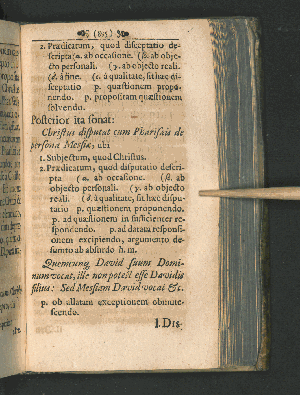 (805)
2. Prædicatum, quod disceptatio de-
scripta (α. ab occasione. (β. ab obje-
cto personali. (γ. ab objecto reali.
(δ. à fine. (ε. à qualitate, sit hæc di-
sceptatio p. quæstionem propo-
nendo. p. propositam quæstionem
solvendo.
Posterior ita sonat:
Christus disputat cum Pharisæis de
persona Messiæ, ubi
1. Subjectum, quod Christus.
2. Prædicatum, quod disputatio descri-
pta (α. ab occasione. (β. ab
objecto personali. (γ. ab objecto
reali. (δ. à qualitate, sit hæc dispu-
tatio p. quæstionem proponendo.
p. ad quæstionem insufficienter re-
spondendo. p. ad datam responsi-
onem excipiendo, argumento de-
sumto ab absurdo h. m.
Quemcunq; David suum Domi-
num vocat, ille non potest esse Davidis
filius: Sed Messiam David vocat &c.
p. ob allatam exceptionem obmute-
scendo.
I. Dis-